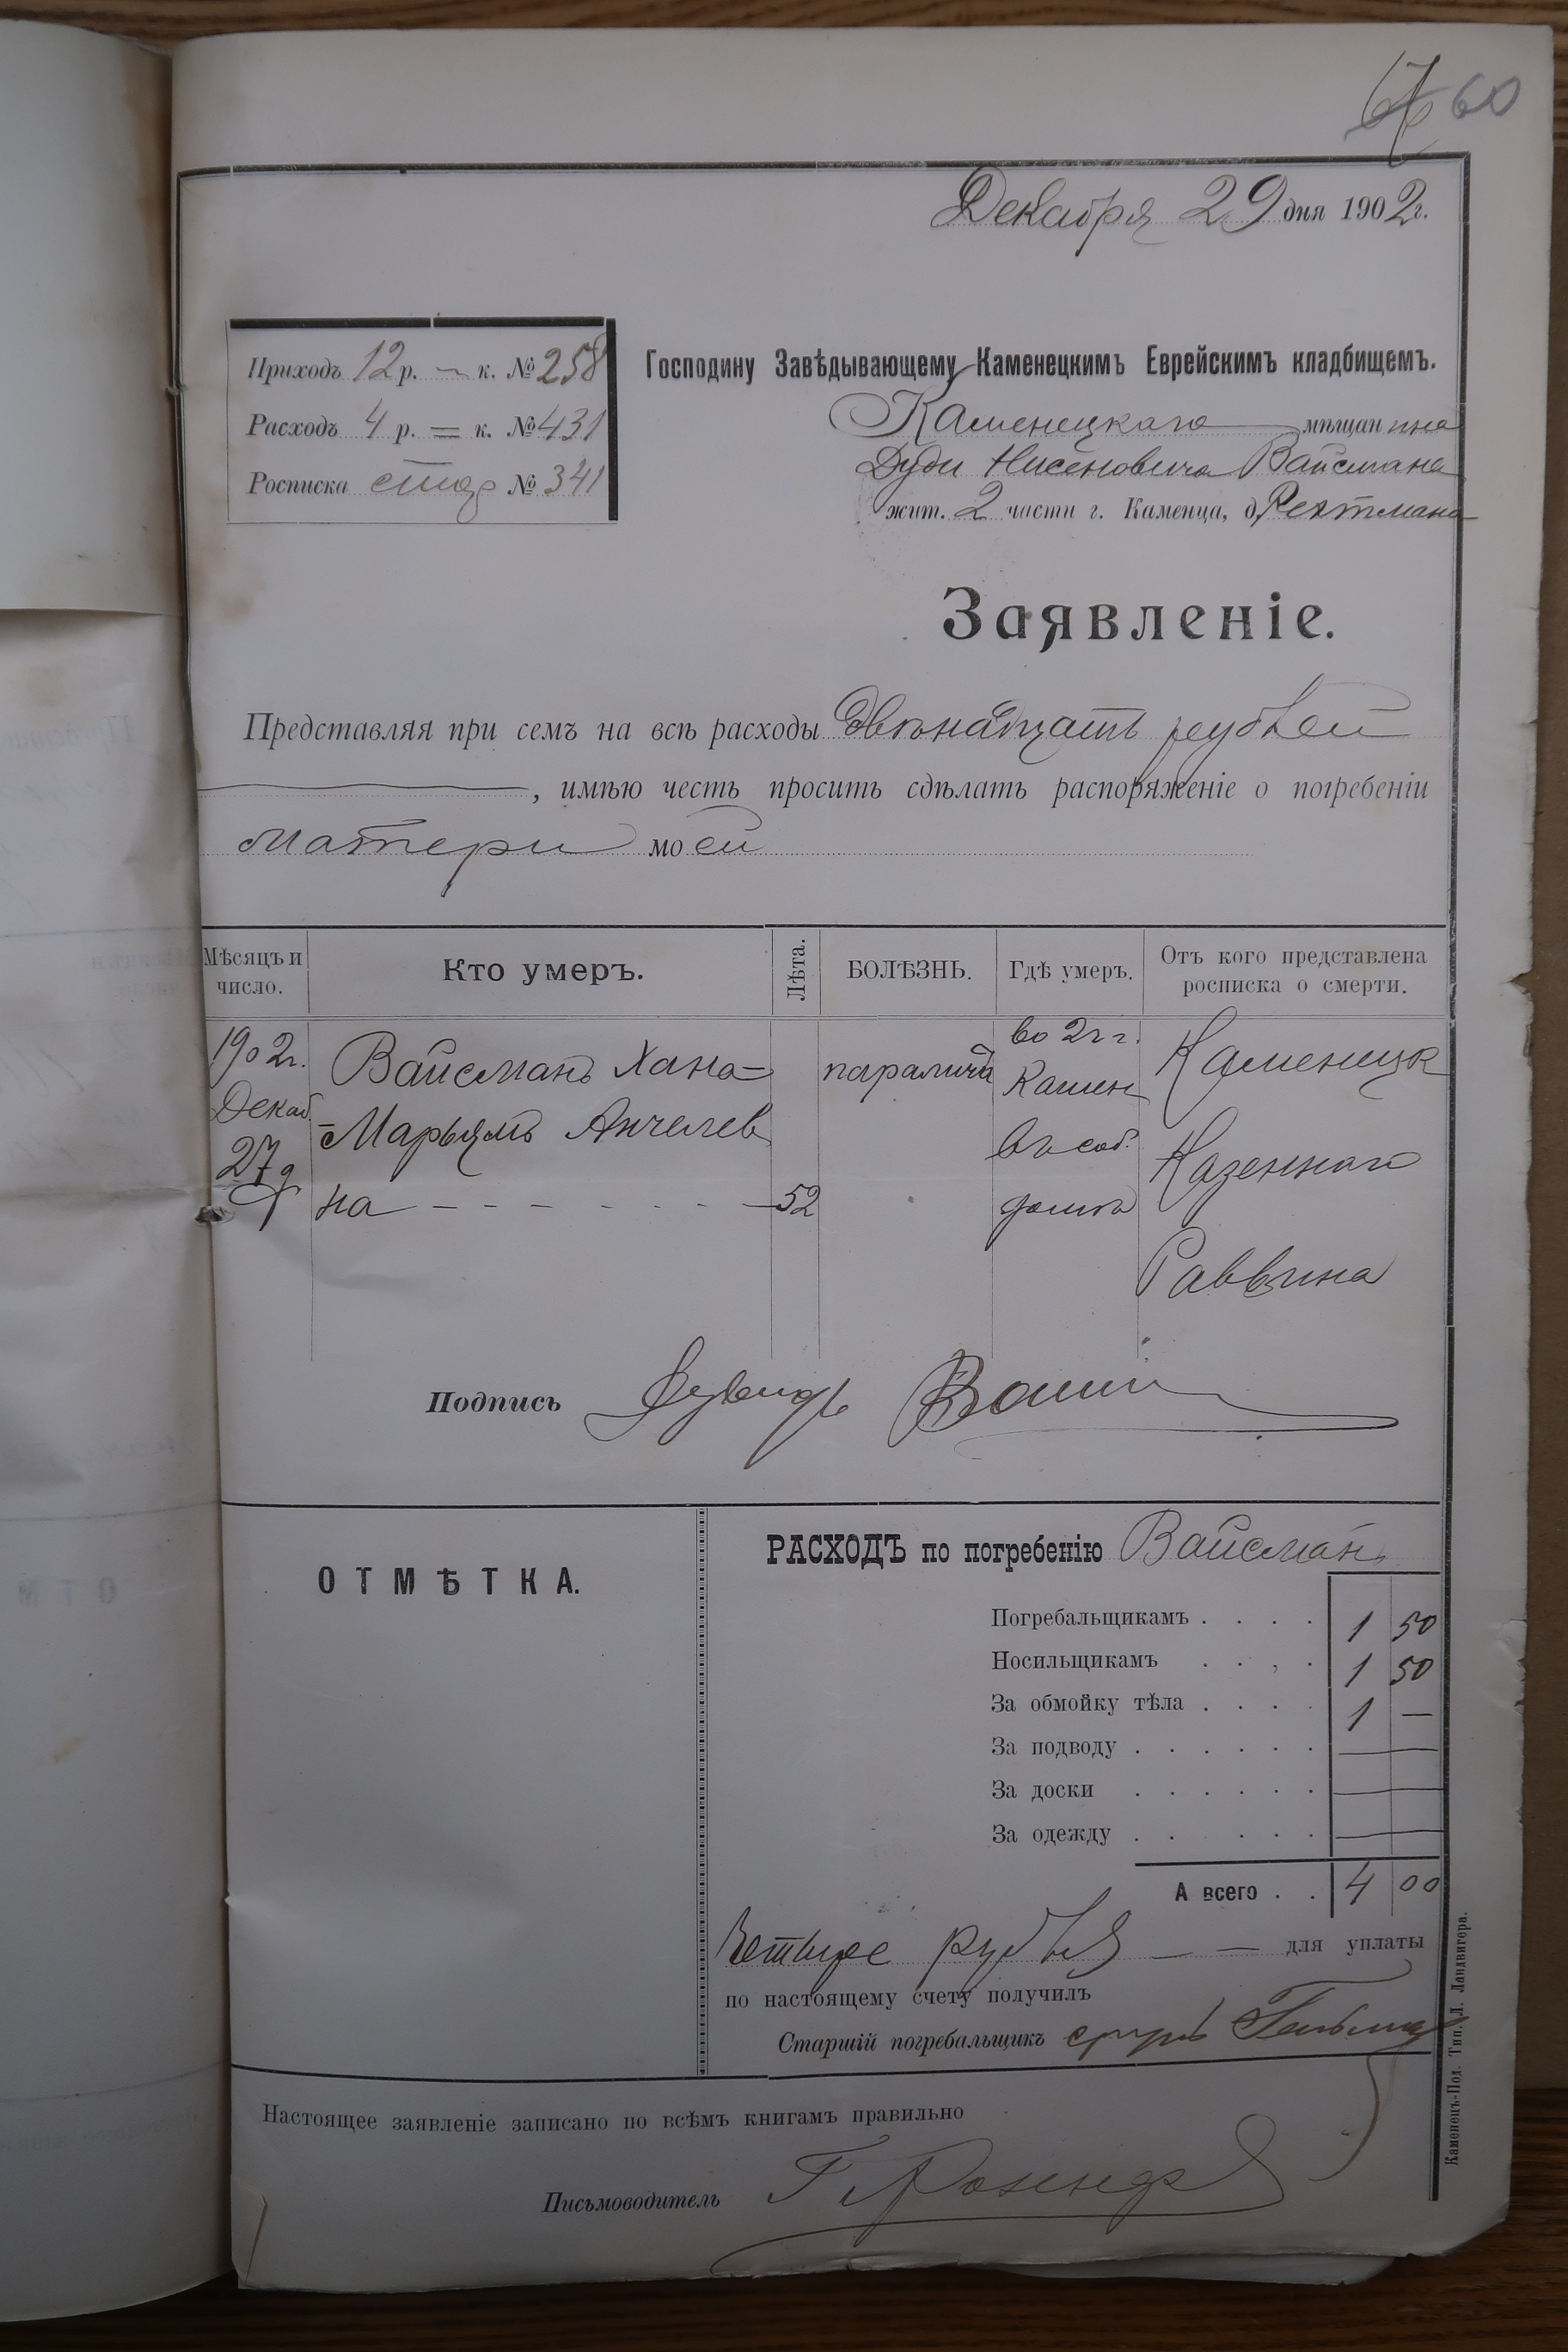 60
Декабря 29 дня 1902 г.
Приходъ 12 р. — к. № 258
Расходъ 4 р. = к. № 431
Росписка № 341
Господину Завѣдывающему Каменецкимъ Еврейскимъ кладбищемъ.
Каменецкаго мѣщанина
Дуди Нисеновича Вайсмана
жит. 2 части г. Каменца, д. Рехтмана
Заявленіе.
Представляя при семъ на всѣ расходы двѣнадцать рублей
, имѣю честь просить сдѣлать распоряженіе о погребеніи
матери моей
Мѣсяцъ и число.
Кто умеръ.
Лѣта.
БОЛѢЗНЬ.
Гдѣ умеръ.
Отъ кого представлена росписка о смерти.
1902г.
Декаб.
27
Вайсманъ Хана-
-Марьямъ Анчелев
на - - - - - - - 52
паралича
во 2 ч г.
Камен
въ соб.
домѣ
Каменецк
Казеннаго
Раввина
Подпись
ОТМѢТКА.
РАСХОДЪ по погребенію Вайсманъ
Погребальщикамъ . . . . 1 50
Носильщикамъ . . , . 1 50
За обмойку тѣла . . . . 1 —
За подводу . . . . . . —
За доски . . . . . . —
За одежду . . . . . . —
А всего . . 4 00
Четыре рубля — — для уплаты
по настоящему счету получилъ
Старшій погребальщикъ
Настоящее заявленіе записано по всѣмъ книгамъ правильно
Письмоводитель
Каменецъ-Под. Тип. Л. Ландвигера.